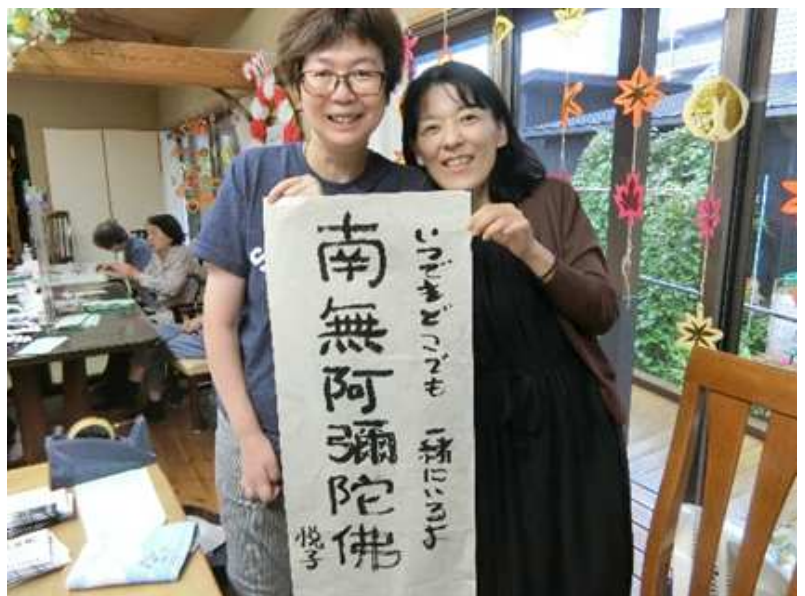 いつでもどこでも 一緒にいるよ
南無阿彌陀佛
悦子